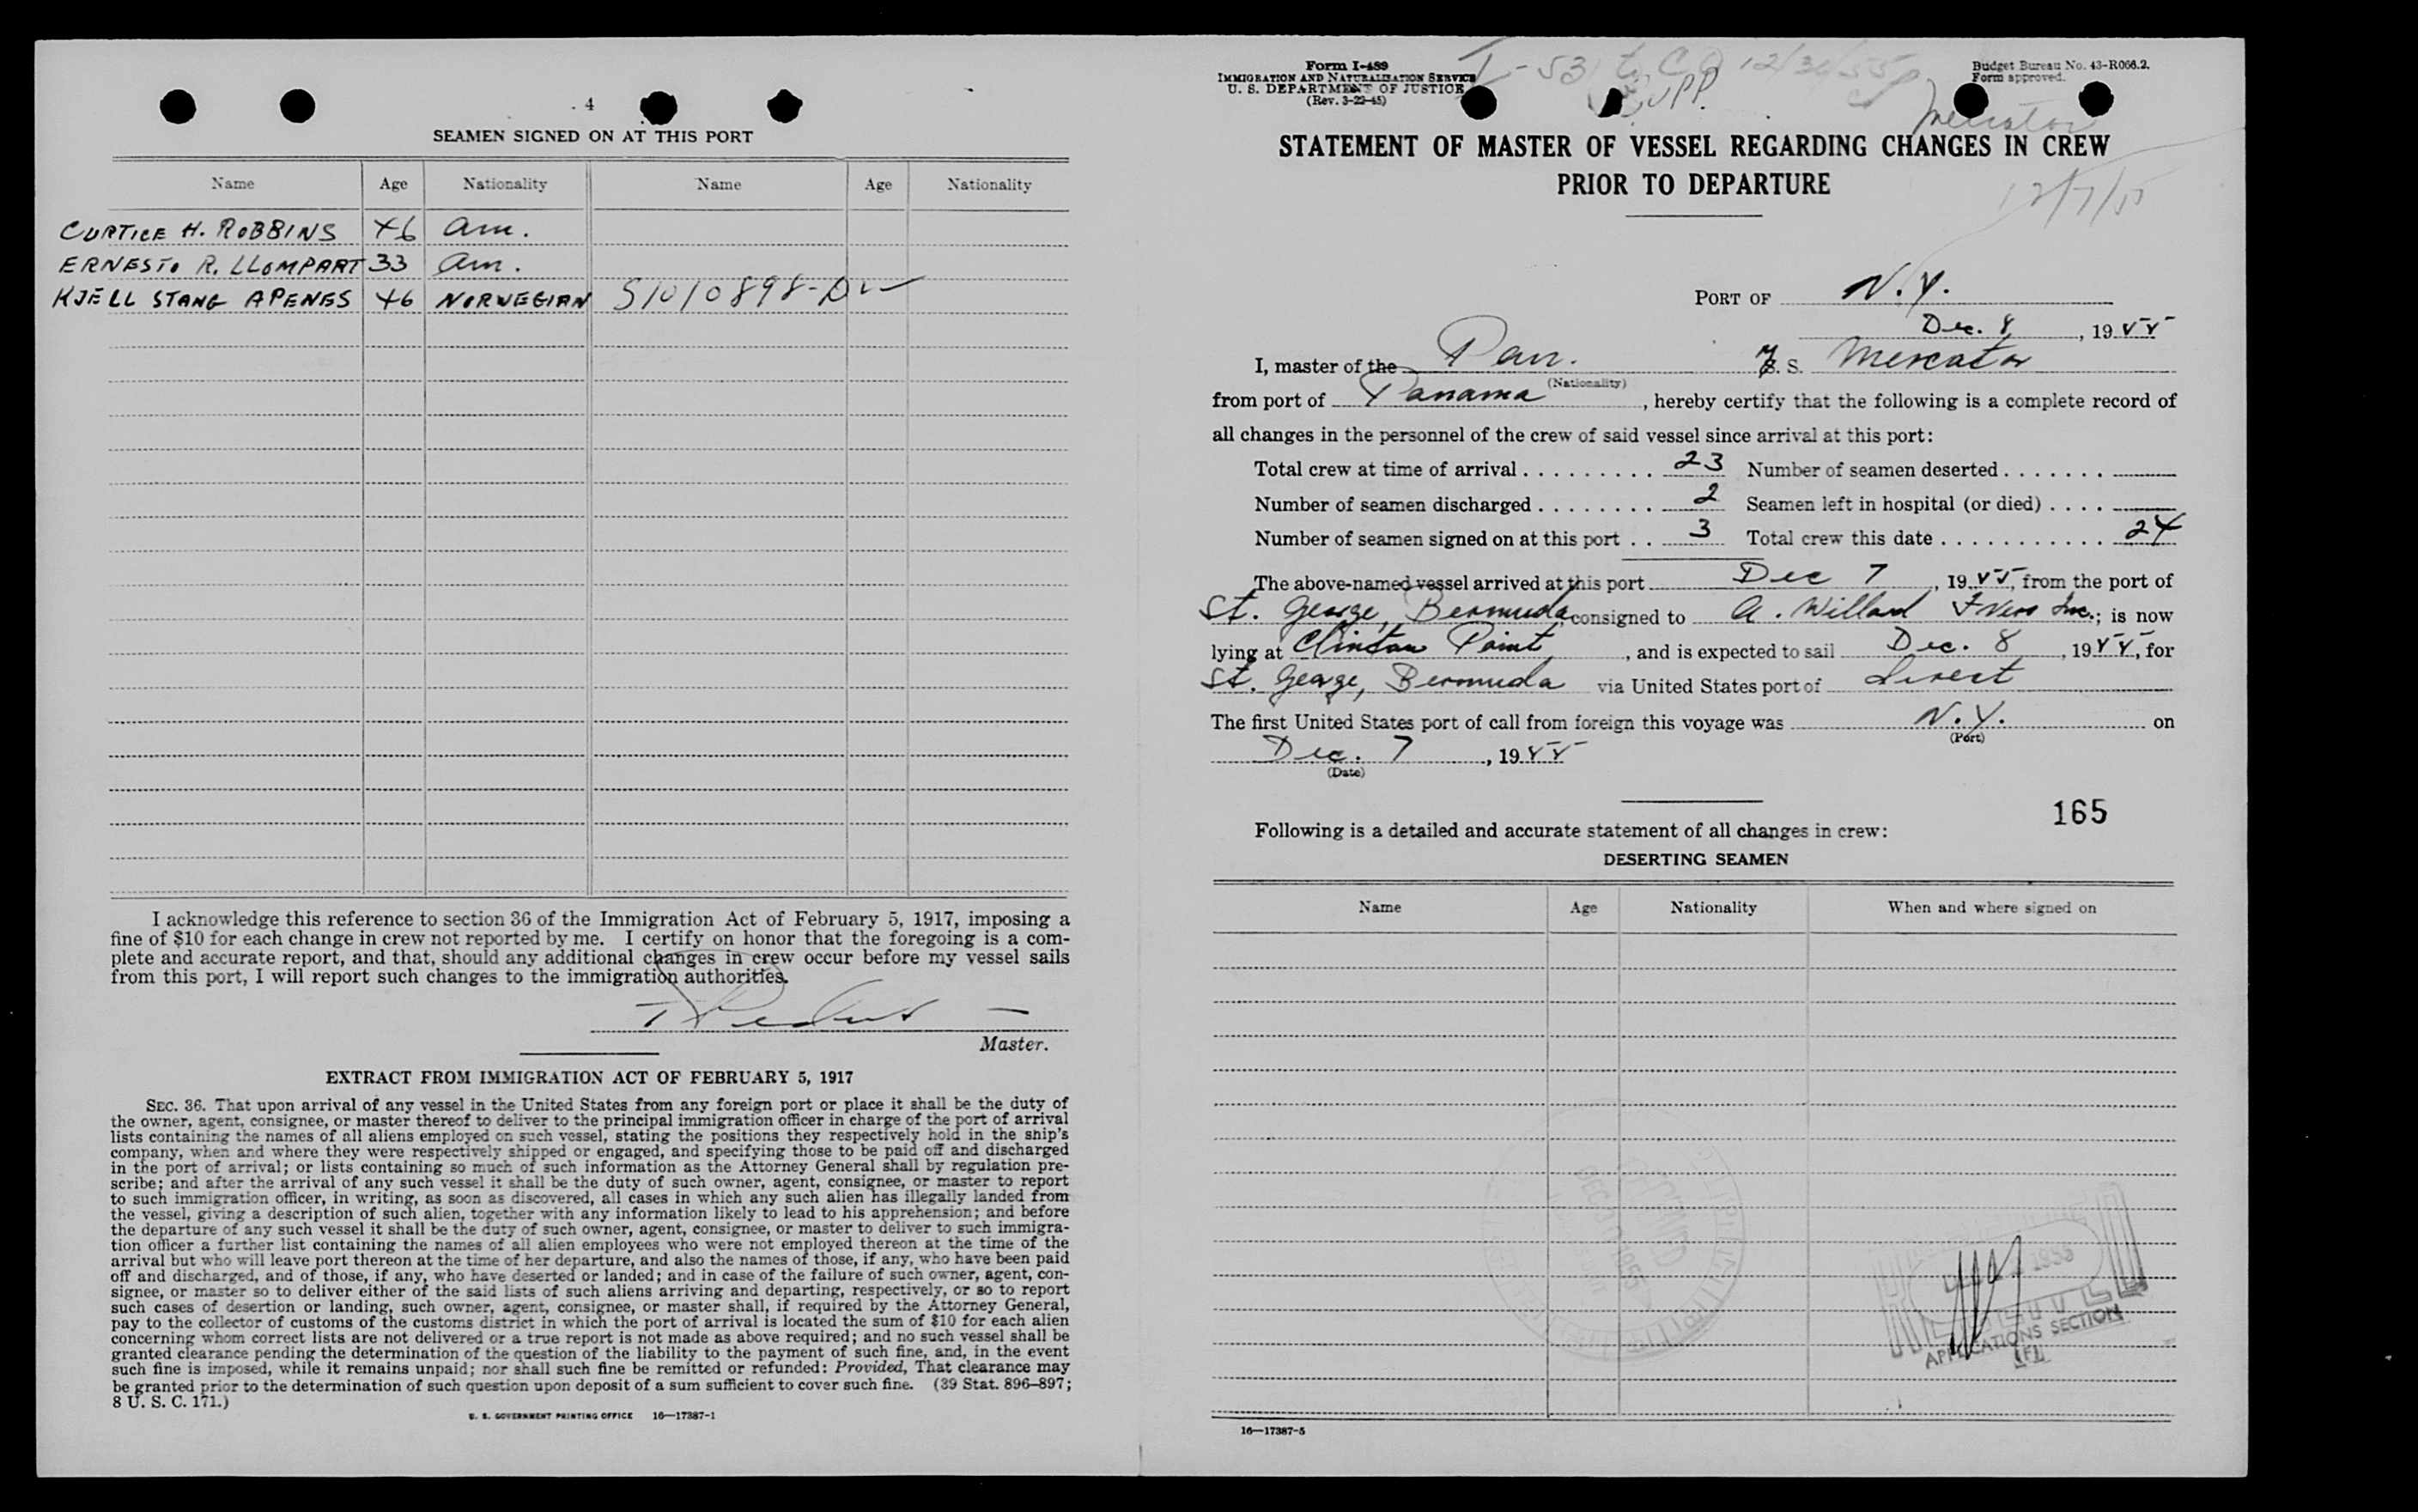 4
SEAMEN SIGNED ON AT THIS PORT
Name Age Nationality Name Age Nationality
CURTICE H. ROBBINS 46 am.
ERNESTO R. LLOMPART 33 am.
KJELL STANG APENES 46 NORWEGIAN S1010898-D
I acknowledge this reference to section 36 of the Immigration Act of February 5, 1917, imposing a
fine of $10 for each change in crew not reported by me. I certify on honor that the foregoing is a com-
plete and accurate report, and that, should any additional changes in crew occur before my vessel sails
from this port, I will report such changes to the immigration authorities.
Master.
EXTRACT FROM IMMIGRATION ACT OF FEBRUARY 5, 1917
SEC. 36. That upon arrival of any vessel in the United States from any foreign port or place it shall be the duty of
the owner, agent, consignee, or master thereof to deliver to the principal immigration officer in charge of the port of arrival
lists containing the names of all aliens employed on such vessel, stating the positions they respectively hold in the ship's
company, when and where they were respectively shipped or engaged, and specifying those to be paid off and discharged
in the port of arrival; or lists containing so much of such information as the Attorney General shall by regulation pre-
scribe; and after the arrival of any such vessel it shall be the duty of such owner, agent, consignee, or master to report
to such immigration officer, in writing, as soon as discovered, all cases in which any such alien has illegally landed from
the vessel, giving a description of such alien, together with any information likely to lead to his apprehension; and before
the departure of any such vessel it shall be the duty of such owner, agent, consignee, or master to deliver to such immigra-
tion officer a further list containing the names of all alien employees who were not employed thereon at the time of the
arrival but who will leave port thereon at the time of her departure, and also the names of those, if any, who have been paid
off and discharged, and of those, if any, who have deserted or landed; and in case of the failure of such owner, agent, con-
signee, or master so to deliver either of the said lists of such aliens arriving and departing, respectively, or so to report
such cases of desertion or landing, such owner, agent, consignee, or master shall, if required by the Attorney General,
pay to the collector of customs of the customs district in which the port of arrival is located the sum of $10 for each alien
concerning whom correct lists are not delivered or a true report is not made as above required; and no such vessel shall be
granted clearance pending the determination of the question of the liability to the payment of such fine, and, in the event
such fine is imposed, while it remains unpaid; nor shall such fine be remitted or refunded: Provided, That clearance may
be granted prior to the determination of such question upon deposit of a sum sufficient to cover such fine. (39 Stat. 896–897;
8 U. S. C. 171.)
U. S. GOVERNMENT PRINTING OFFICE 16—17387-1
Form I-489
IMMIGRATION AND NATURALIZATION SERVICE
U. S. DEPARTMENT OF JUSTICE
(Rev. 3-22-45)
I-53
Budget Bureau No. 43-R066.2.
Form approved.
Mercator
STATEMENT OF MASTER OF VESSEL REGARDING CHANGES IN CREW
PRIOR TO DEPARTURE
12/7/55
PORT OF N.Y.
Dec. 8, 1955
I, master of the Pan. S. Mercator
(Nationality)
from port of Panama, hereby certify that the following is a complete record of
all changes in the personnel of the crew of said vessel since arrival at this port:
Total crew at time of arrival 23 Number of seamen deserted
Number of seamen discharged 2 Seamen left in hospital (or died)
Number of seamen signed on at this port 3 Total crew this date 24
The above-named vessel arrived at this port Dec 7, 1955, from the port of
St. George, Bermuda, consigned to A. Willard Ivers Inc.; is now
lying at Clinton Point, and is expected to sail Dec. 8, 1955, for
St. George, Bermuda via United States port of direct
The first United States port of call from foreign this voyage was N.Y. on
(Port)
Dec. 7, 1955
(Date)
165
Following is a detailed and accurate statement of all changes in crew:
DESERTING SEAMEN
Name Age Nationality When and where signed on
APPLICATIONS SECTION
16—17387-5